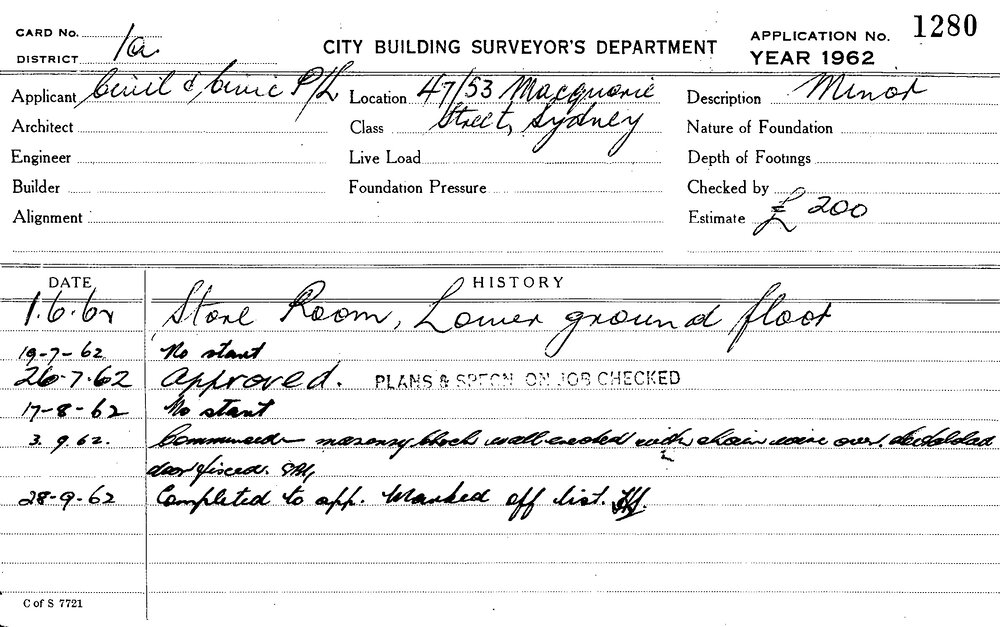 CARD No. 1280
DISTRICT 1a. CITY BUILDING SURVEYOR'S DEPARTMENT APPLICATION No.
YEAR 1962
Applicant Civil & Civic P/L Location 47/53 Macquarie Description Minor
Architect Class Street, Sydney Nature of Foundation
Engineer Live Load Depth of Footings
Builder Foundation Pressure Checked by
Alignment Estimate £ 200
DATE HISTORY
1.6.62 Store Room, Lower ground floor
19-7-62 No start
26.7.62 Approved. PLANS & SPECN. ON JOB CHECKED
17-8-62 No start
3.9.62. Commenced masonry block wall erected with chain wire over.
door fixed.
28-9-62 Completed to app. Marked off list.
C of S 7721